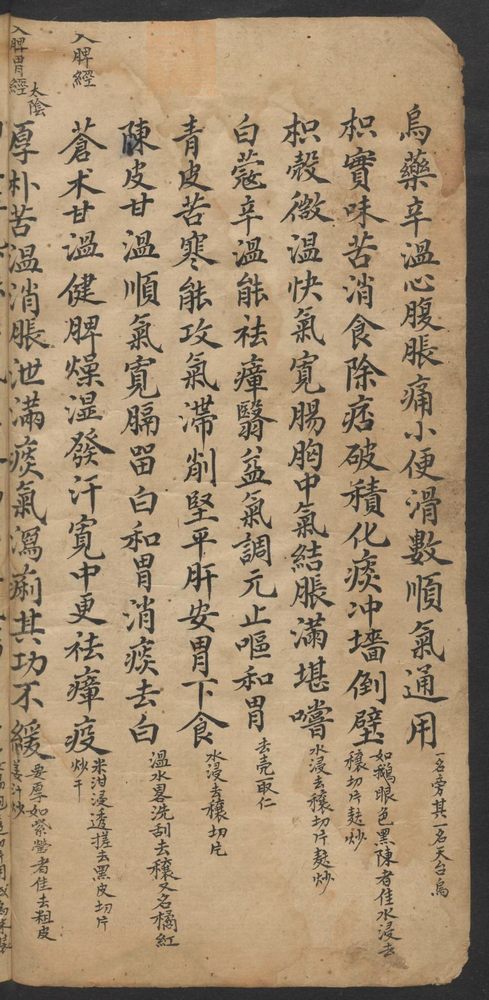 烏藥辛溫心腹脹痛小便滑數順氣通用
一名旁其一名天台烏
枳實味苦消食除痞破積化痰冲墻倒壁
如鵝眼色黑陳者佳水浸去
穰切片麸炒
枳殼微溫快氣寬腸胸中氣結脹滿堪嚐
水浸去穰切片麸炒
白蔻辛溫能祛瘴翳益氣調元止嘔和胃
去壳取仁
青皮苦寒能攻氣滯削堅平肝安胃下食
水浸去穰切片
陳皮甘溫順氣寬膈畱白和胃消痰去白
溫水畧洗刮去穰又名橘紅
入脾經
蒼术甘溫健脾燥湿發汗寬中更祛瘴疫
米泔浸透搓去黑皮切片
炒干
入脾胃經
太陰
厚朴苦溫消脹泄滿痰氣瀉痢其功不緩
要厚如紫瑩者佳去粗皮
姜汁炒